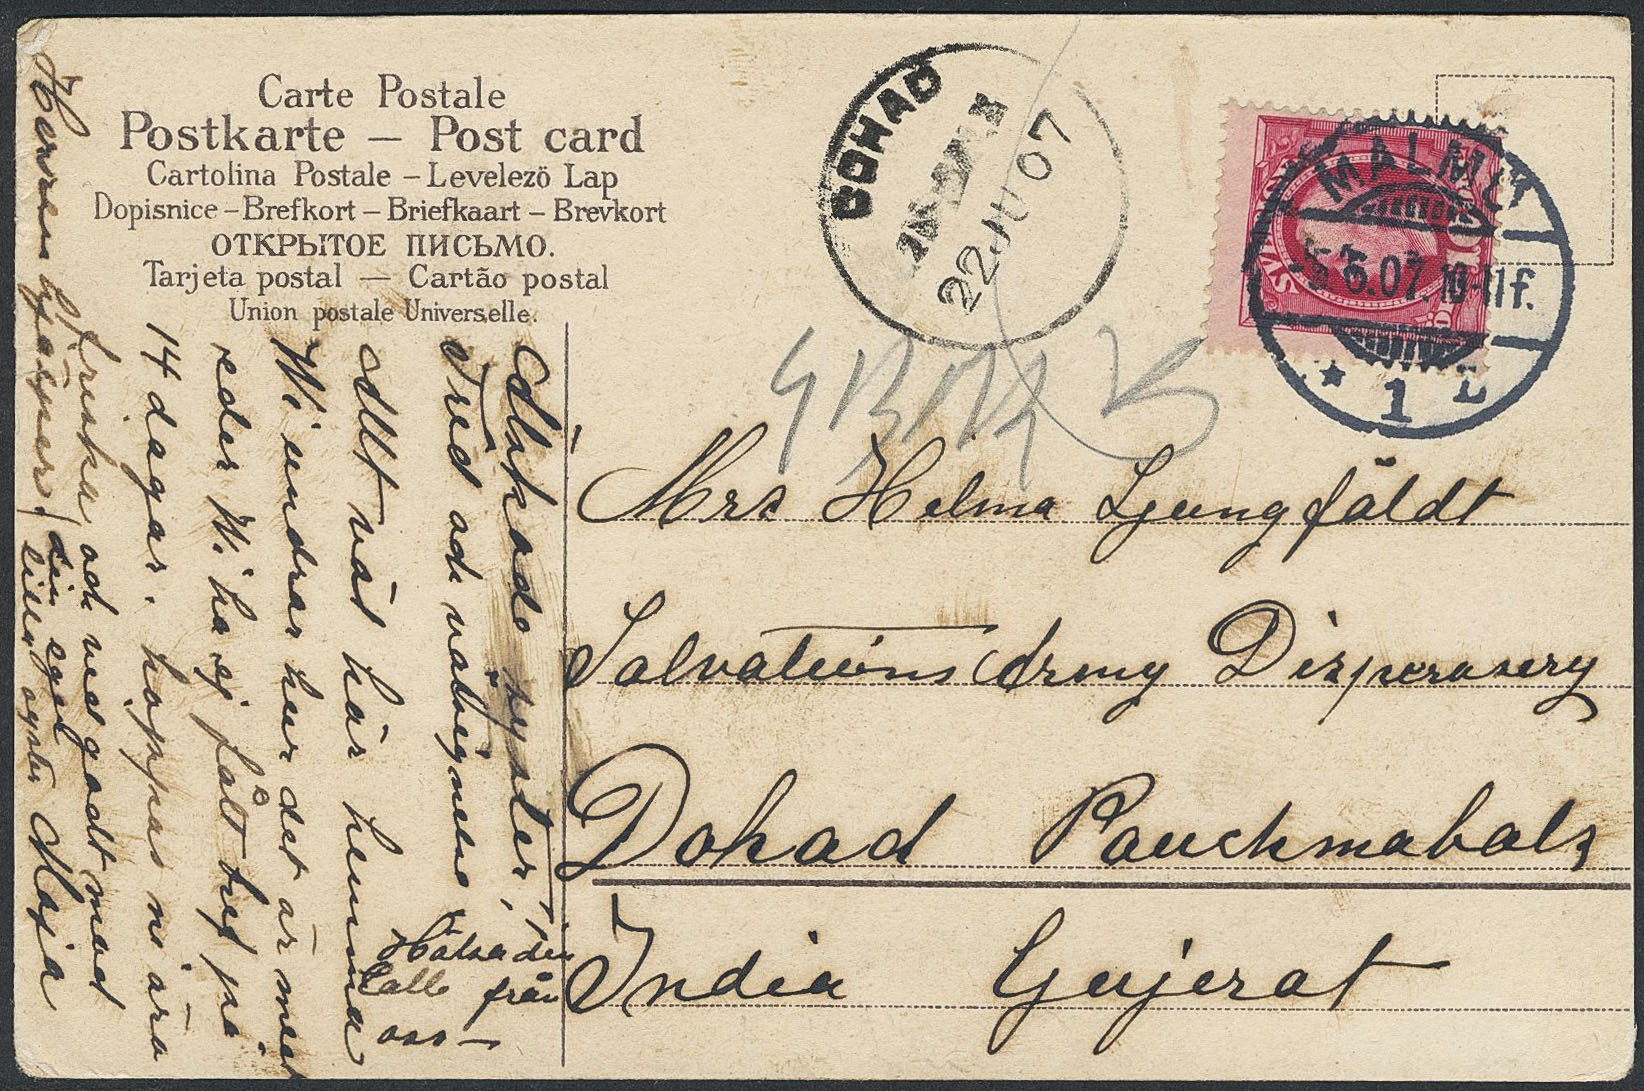 Carte Postale
Postkarte — Post card
Cartolina Postale – Levelezö Lap
Dopisnice – Brefkort – Briefkaart – Brevkort
ОТКРЫТОЕ ПИСЬМО.
Tarjeta postal — Cartão postal
Union postale Universelle.
DOHAD
22 JU 07
MALMÖ
5.6.07. 10-11 f.
* 1 L
Mrs Helma Ljungfäldt
Salvations Army Dispensery
Dohad Panchmahals
India Gujerat
Älskade syster!
Frid och välsignelse
Allt väl här hemma
Wi undrar hur det är med
eder Wi ha ej fått bref på
14 dagar. hoppas ni ära
friska och vid godt mod
Herren hjälper! din egen
lilla syster Maja
Hälsa din
Calle från
oss —